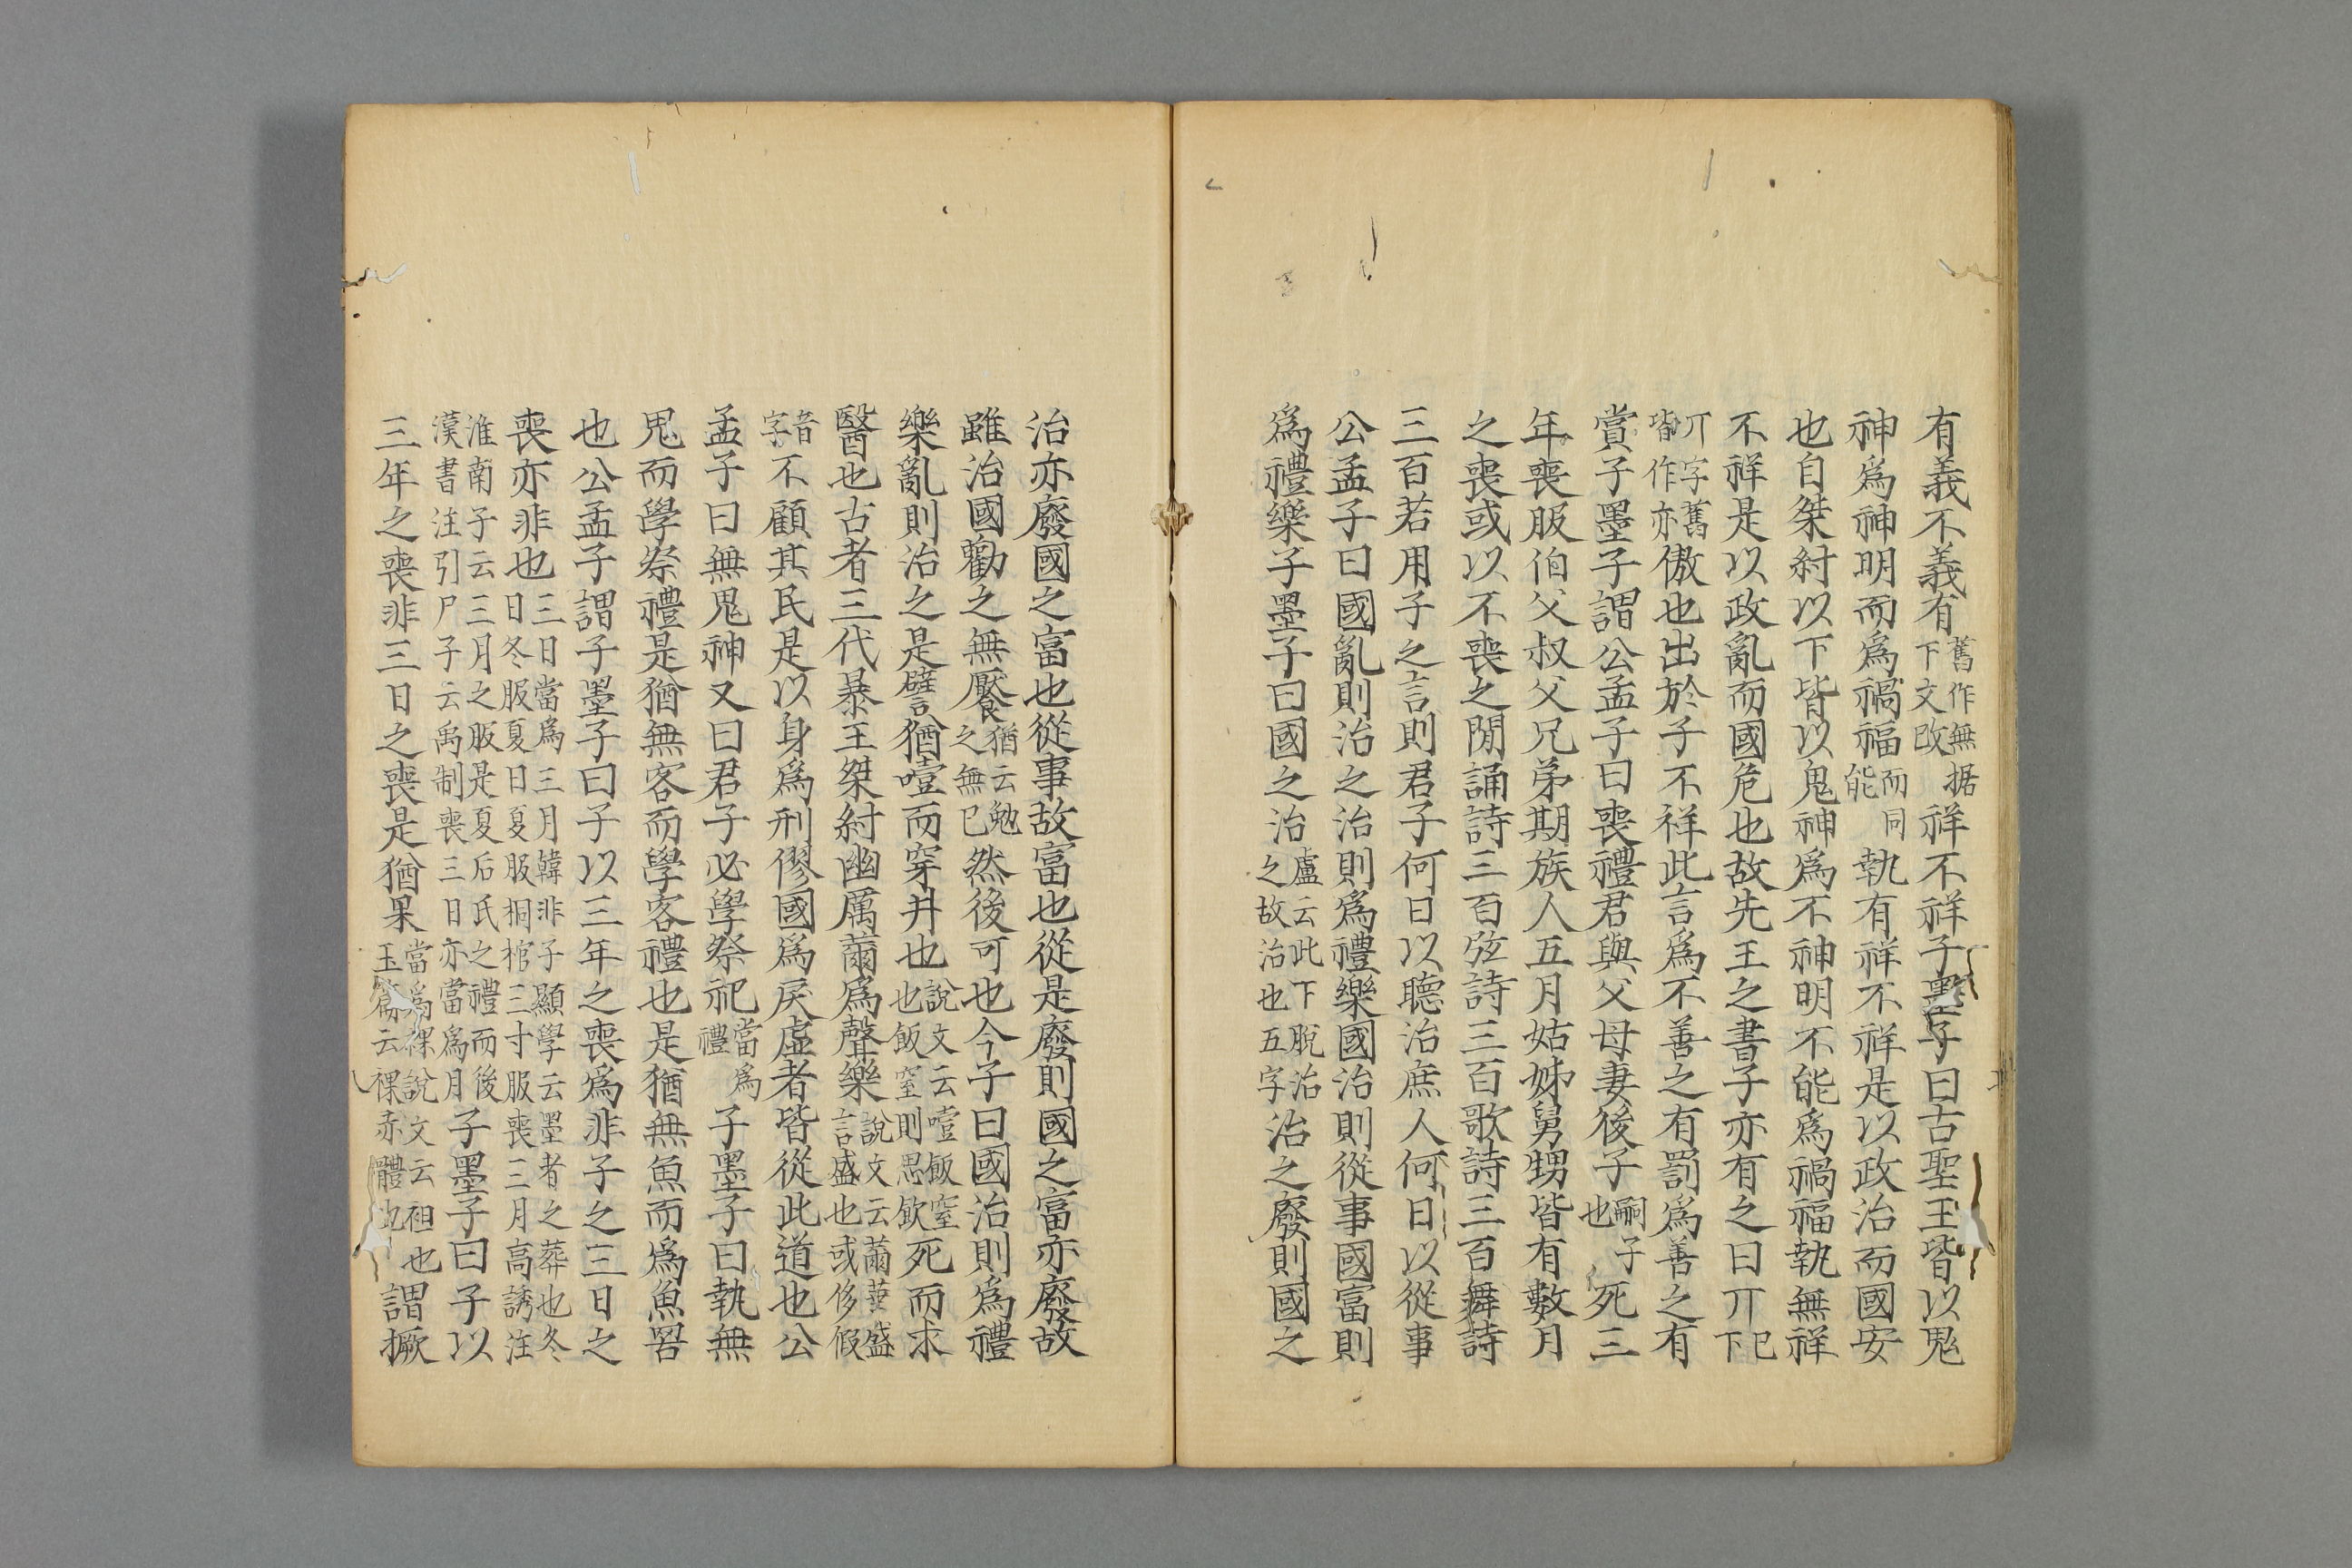 有義不義有舊作無据下文改祥不祥子墨子曰古聖王皆以鬼
神爲神明而爲禍福而同能執有祥不祥是以政治而國安
也自桀紂以下皆以鬼神爲不神明不能爲禍福執無祥
不祥是以政亂而國危也故先王之書子亦有之曰丌已下
丌字舊皆作亦傲也出於子不祥此言爲不善之有罰爲善之有
賞子墨子謂公孟子曰喪禮君與父母妻後子嗣子也死三
年喪服伯父叔父兄弟期族人五月姑姊舅甥皆有數月
之喪或以不喪之閒誦詩三百弦詩三百歌詩三百舞詩
三百若用子之言則君子何日以聽治庶人何日以從事
公孟子曰國亂則治之治則爲禮樂國治則從事國富則
爲禮樂子墨子曰國之治盧云此下脫治之故治也五字治之廢則國之
治亦廢國之富也從事故富也從是廢則國之富亦廢故
雖治國勸之無饜猶云勉之無已然後可也今子曰國治則爲禮
樂亂則治之是譬猶噎而穿井也說文云噎飯窒也飯窒則思飲死而求
醫也古者三代暴王桀紂幽厲薾爲聲樂說文云薾華盛言盛也或侈假
音字不顧其民是以身爲刑僇國爲戾虛者皆從此道也公
孟子曰無鬼神又曰君子必學祭祀當爲禮子墨子曰執無
鬼而學祭禮是猶無客而學客禮也是猶無魚而爲魚罟
也公孟子謂子墨子曰子以三年之喪爲非子之三日之
喪亦非也三日當爲三月韓非子顯學云墨者之葬也冬日冬服夏日夏服桐棺三寸服喪三月高誘注
淮南子云三月之服是夏后氏之禮而後漢書注引尸子云禹制喪三日亦當爲月子墨子曰子以
三年之喪非三日之喪是猶果當爲裸說文云袒也玉篇云裸赤體也謂撅